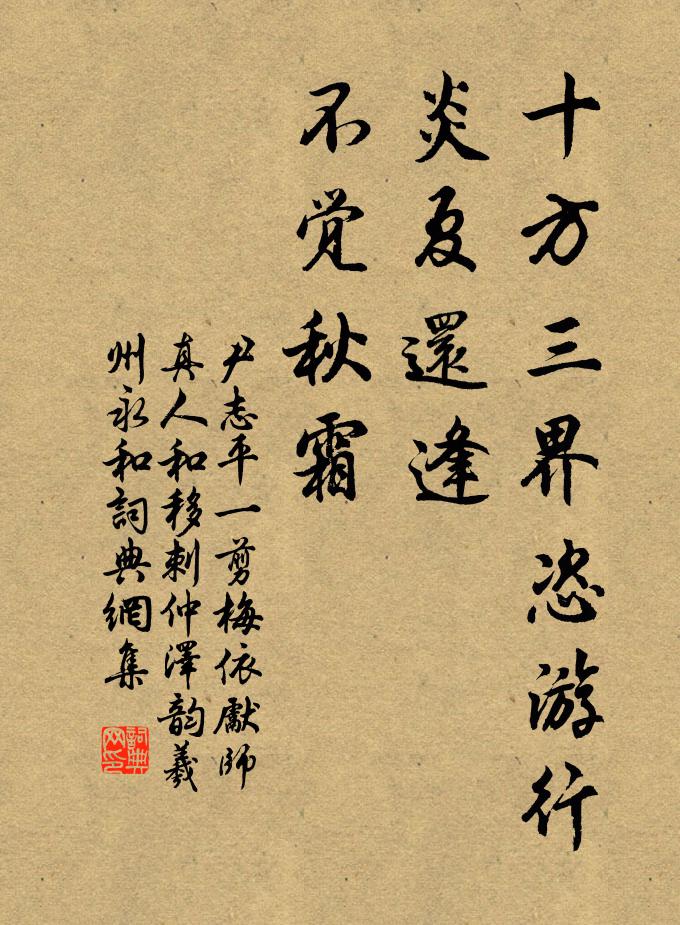 十方三界恣游行
炎夏還逢
不觉秋霜
尹志平一剪梅依獻師
真人和移剌仲澤韵羲
州永和詞典網集
詞典网印